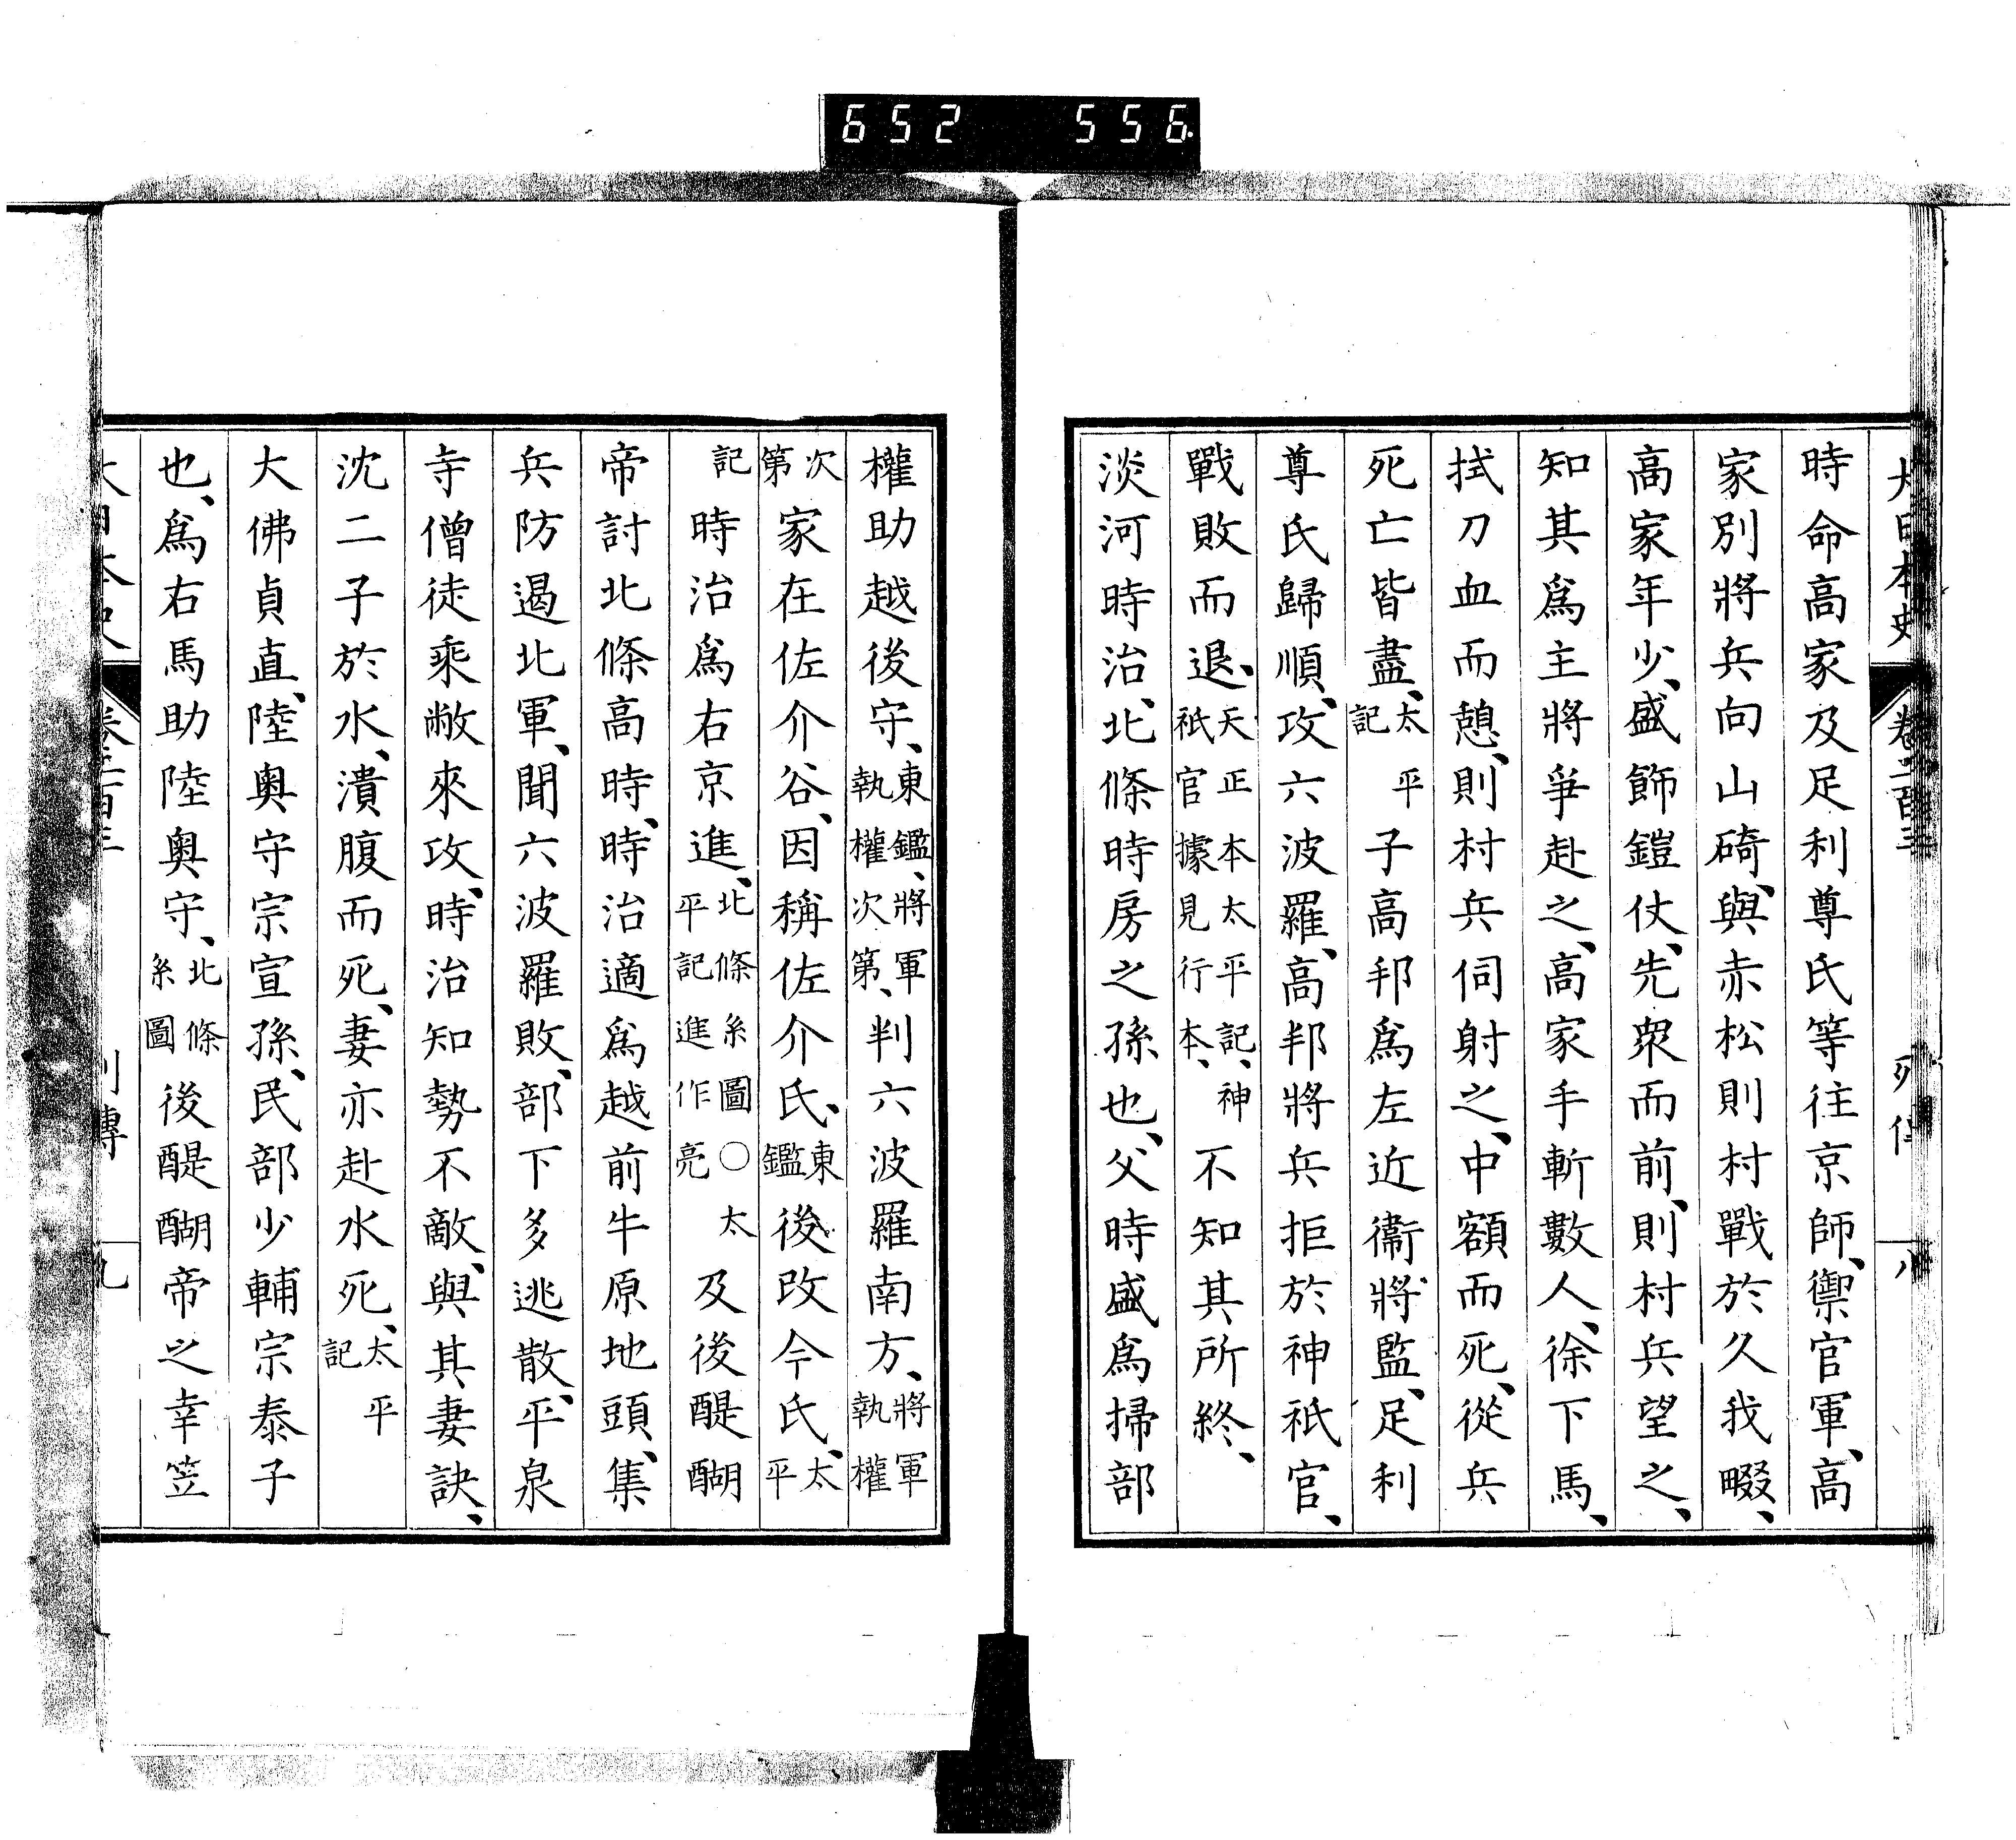 652 556
大日本史 卷二百三 列傳 八
時命高家及足利尊氏等往京師、禦官軍、高
家別將兵向山碕、與赤松則村戰於久我畷、
高家年少、盛飾鎧仗、先衆而前、則村兵望之、
知其爲主將爭赴之、高家手斬數人、徐下馬、
拭刀血而憩、則村兵伺射之、中額而死、從兵
死亡皆盡、太平記子高邦爲左近衞將監、足利
尊氏歸順、攻六波羅、高邦將兵拒於神祇官、
戰敗而退、天正本太平記、神祇官據見行本、不知其所終、
淡河時治、北條時房之孫也、父時盛爲掃部
權助越後守、東鑑、將軍執權次第、判六波羅南方、將軍執權
次第家在佐介谷、因稱佐介氏、東鑑後改今氏、太平
記時治爲右京進、北條系圖○太平記進作亮及後醍醐
帝討北條高時、時治適爲越前牛原地頭、集
兵防遏北軍、聞六波羅敗、部下多逃散、平泉
寺僧徒乘敝來攻、時治知勢不敵、與其妻訣、
沈二子於水、潰腹而死、妻亦赴水死、太平記
大佛貞直、陸奧守宗宣孫、民部少輔宗泰子
也、爲右馬助陸奧守、北條系圖後醍醐帝之幸笠
大日本史 卷二百三 列傳 九